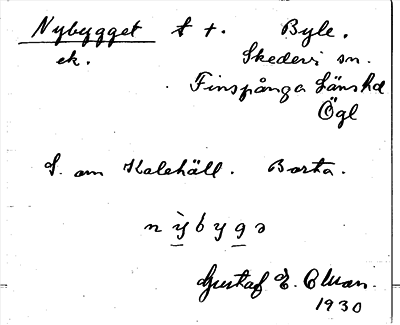 Nybygget t t. Byle.
ek. Skedevi sn.
Finspånga Länshd
Ögl
S. om Kalehäll. Borta.
n ỳ̠ b y g̠ ə
Gustaf E.
1930